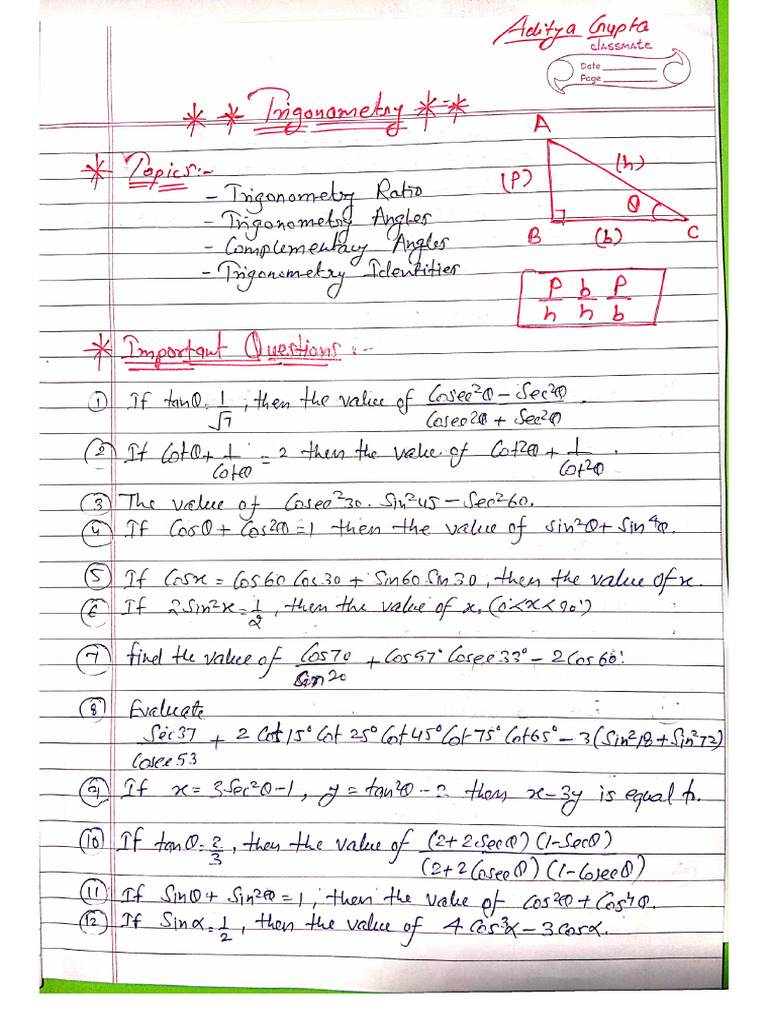 Aditya Gupta
classmate
Date
Page
** Trigonometry **
* Topics:-
- Trigonometry Ratio
- Trigonometry Angles
- Complementary Angles
- Trigonometry Identities
A
(P)
(h)
θ
B
(b)
C
P/h b/h P/b
* Important Questions :-
① If tanθ = 1/√7, then the value of (Cosec²θ − Sec²θ)/(Cosec²θ + Sec²θ).
② If Cotθ + 1/Cotθ = 2 then the value of Cot²θ + 1/Cot²θ.
③ The value of Cosec²30. Sin²45 − Sec²60.
④ If Cosθ + Cos²θ = 1 then the value of sin²θ + Sin⁴θ.
⑤ If Cosx = Cos60 Cos30 + Sin60 Sin30, then the value of x.
⑥ If 2Sin²x = 1/2, then the value of x. (0<x<90°)
⑦ find the value of Cos70/Sin20 + Cos57° Cosec33° − 2Cos60°
⑧ Evaluate
Sec37/Cosec53 + 2 Cot15° Cot 25° Cot45° Cot75° Cot65° − 3(Sin²18 + Sin²72)
⑨ If x = 3Sec²θ−1, y = tan²θ − 2 then x−3y is equal to.
⑩ If tanθ = 2/3, then the value of (2+2Secθ)(1−Secθ)/(2+2Cosecθ)(1−Cosecθ)
⑪ If Sinθ + Sin²θ = 1, then the value of Cos²θ + Cos⁴θ.
⑫ If Sinα = 1/2, then the value of 4Cos³α − 3Cosα.